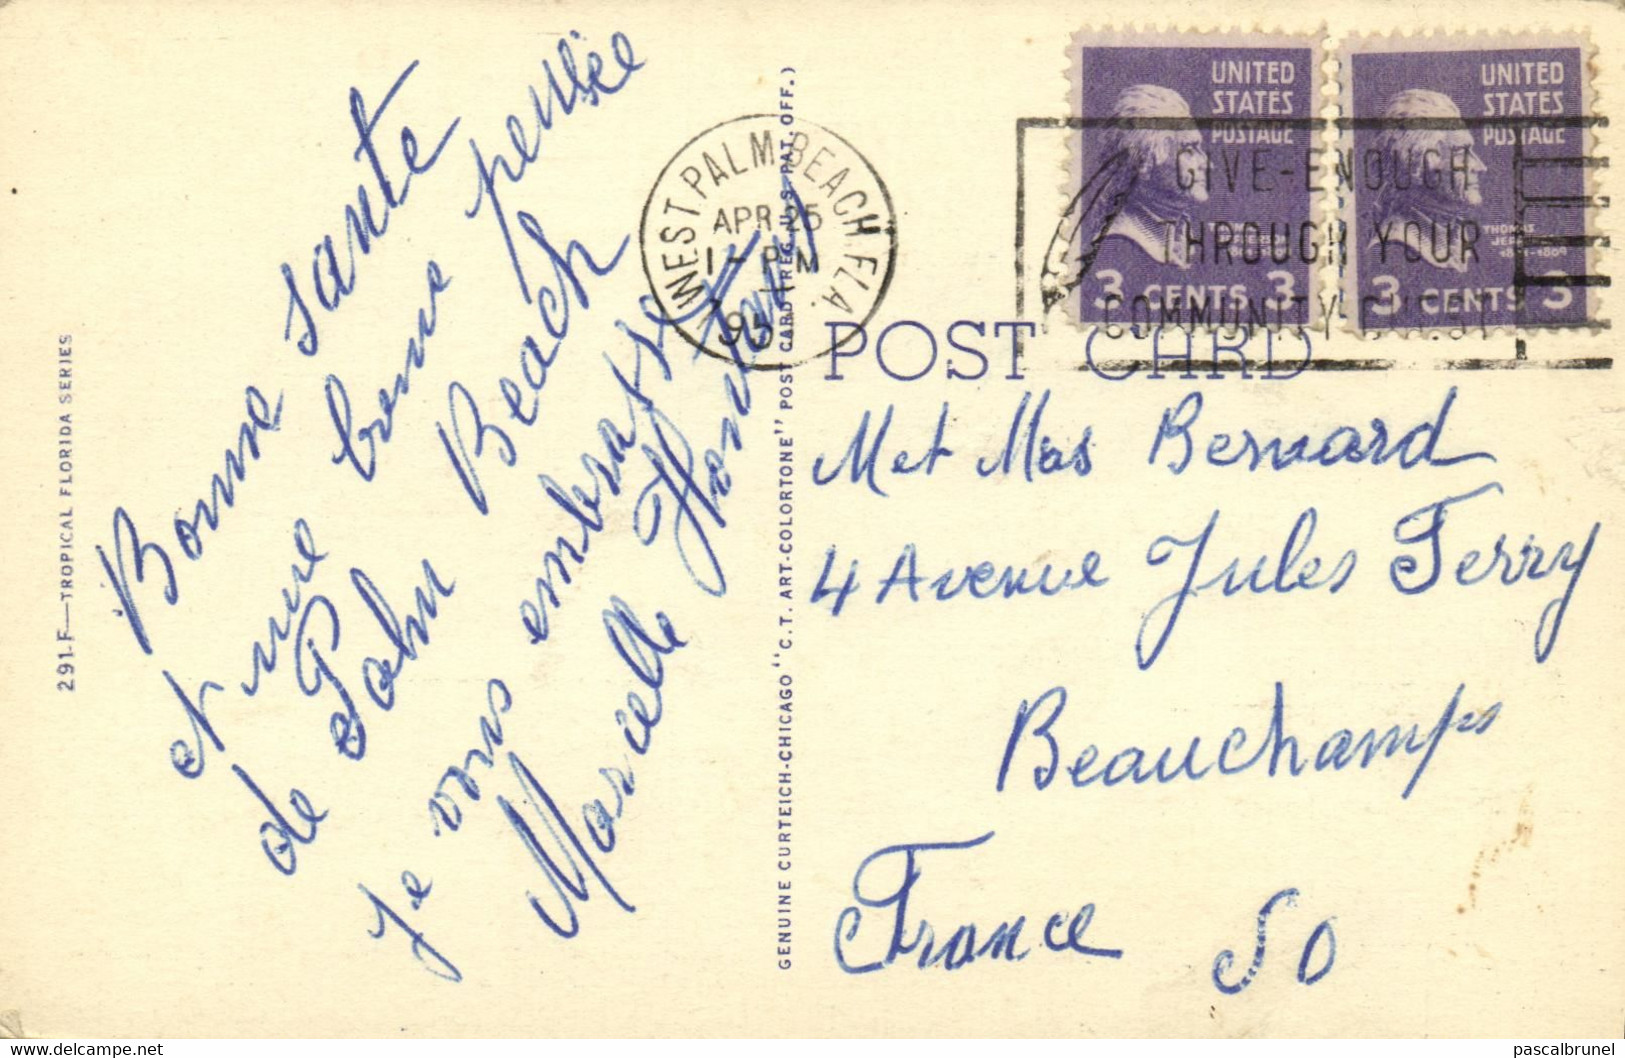 Bonne santé
et une bonne pensée
de Palm Beach
je vous embrasse
Marcelle
291-F—TROPICAL FLORIDA SERIES
GENUINE CURTEICH-CHICAGO "C.T. ART-COLORTONE" POST CARD (REG. U.S. PAT. OFF.)
WEST PALM BEACH, FLA.
APR 25
1 - PM
195
UNITED
STATES
POSTAGE
3 CENTS 3
UNITED
STATES
POSTAGE
THOMAS
3 CENTS 3
GIVE-ENOUGH
THROUGH YOUR
COMMUNITY
POST CARD
M et Mas Bernard
4 Avenue Jules Ferry
Beauchamps
France SO
www.delcampe.net
pascalbrunel